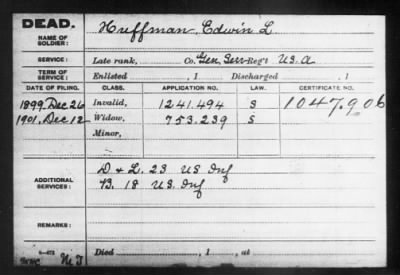 DEAD.
NAME OF SOLDIER: Huffman, Edwin L
SERVICE: Late rank, Co. Gen Serv Reg't U.S.A
TERM OF SERVICE: Enlisted , 1 Discharged , 1
DATE OF FILING. CLASS. APPLICATION NO. LAW. CERTIFICATE NO.
1899 Dec 26 Invalid, 1241.494 S 1047.906
1901. Dec 12 Widow, 753.239 S
Minor,
ADDITIONAL SERVICES: D & L. 23 US Inf
B. 18 U.S. Inf
REMARKS:
Died , 1 , at